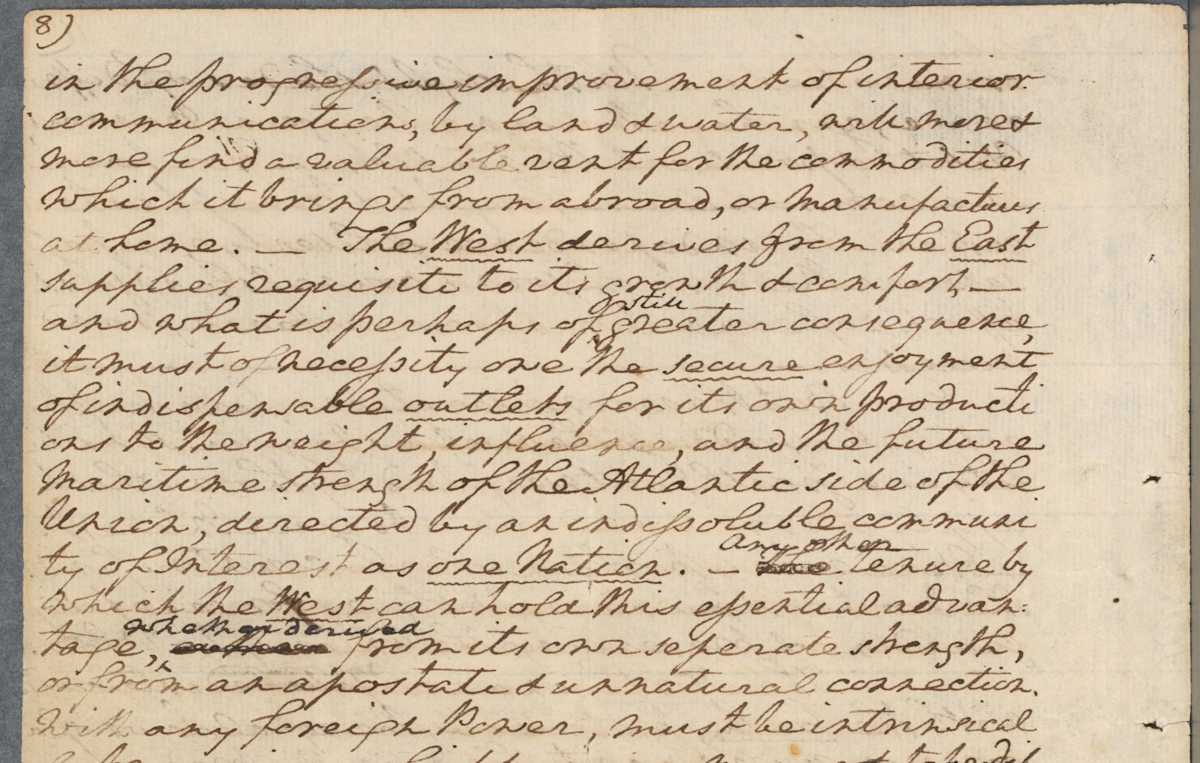 8)
in the progressive improvement of interior
communications, by land & water, will more &
more find a valuable vent for the commodities
which it brings from abroad, or manufactures
at home. — The West derives from the East
supplies requisite to its growth & comfort, —
still
and what is perhaps of greater consequence,
it must of necessity owe the secure enjoyment
of indispensable outlets for its own producti
ons to the weight, influence, and the future
Maritime strength of the Atlantic side of the
Union, directed by an indissoluble communi
any other
ty of Interest as one Nation. — tenure by
which the West can hold this essential advan:
whether derived
tage, from its own seperate strength,
or from an apostate & unnatural connection
with any foreign Power, must be intrinsical